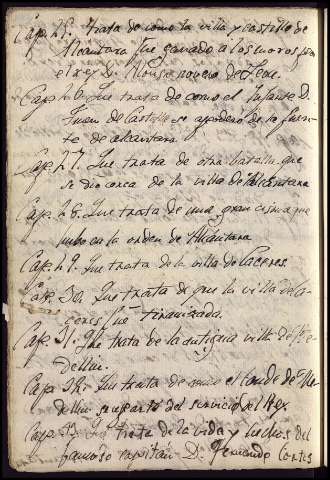 Cap. 25. Trata de como la villa y castillo de
Alcantara fue ganado a los moros por
el rey D. Alonso noveno de Leon.
Cap. 26. Que trata de como el Infante D.
Juan de Castilla se apodero de la fuer-
te de alcantara.
Cap. 27. Que trata de otra batalla que
se dio cerca de la villa de Alcantara
Cap. 28. Que trata de una gran cisma que
hubo en la orden de Alcantara
Cap. 29. Que trata de la villa de Caceres.
Cap. 30. Que trata de que la villa de Ca-
ceres fue tiranizada.
Cap. 31. Que trata de la antigua villa de
dellin.
Cap. 32. Que trata de como el conde de Me-
dellin se aparto del servicio del Rey.
Cap. 33. Que trata de la vida y hechos del
famoso capitan D. Fernando Cortes